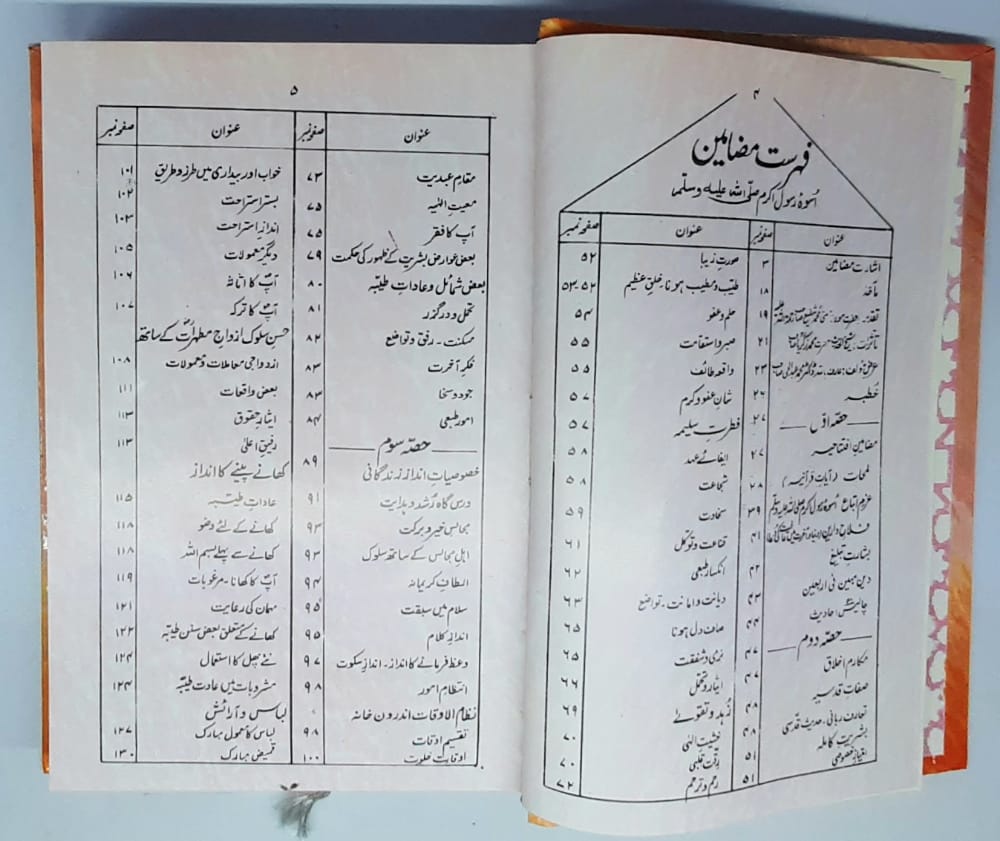 ۴
فہرست مضامین
اسوۂ رسول اکرم صلی اللہ علیہ وسلم
عنوان صفحہ نمبر
اشارت مضامین ۳
مآخذ ۱۸
۱۹
۲۱
۲۳
خطبہ ۲۶
حصّہ اوّل ۲۷
مضامین افتتاحیہ ۲۷
لمحات (آیات قرآنیہ) ۲۸
عزم اتباع اسوۂ رسول اکرم صلی اللہ علیہ وسلم ۳۹
۴۱
بشارت تبلیغ ۴۲
دین مبین فی اربعین ۴۳
چالیس احادیث ۴۴
حصّہ دوم
مکارم اخلاق ۴۷
صفات قدسیہ ۴۷
تعارف ربانی، حدیث قدسی ۴۸
بشریت کاملہ ۴۸
امتیاز خصوصی ۵۱
۵۱
عنوان صفحہ نمبر
صورت زیبا ۵۲
طیّب و مطیّب ہونا۔ خلق عظیم ۵۲، ۵۳
حلم و عفو ۵۴
صبر و استقامت ۵۵
واقعہ طائف ۵۵
شان عفو و کرم ۵۷
فطرت سلیمہ ۵۷
ایفائے عہد ۵۸
شجاعت ۵۸
سخاوت ۵۹
قناعت و توکل ۶۱
انکسار طبعی ۶۲
دیانت و امانت۔ تواضع ۶۳
صاف دل ہونا ۶۵
نرمی و شفقت ۶۵
ایثار و تحمل ۶۶
زہد و تقوٰے ۶۹
خشیت الٰہی ۷۰
رقت قلبی ۷۰
رحم و ترحم ۷۲
۵
عنوان صفحہ نمبر
مقام عبدیت ۷۳
معیت الٰہیہ ۷۵
آپ کا فقر ۷۵
بعض عوارض بشریت کے ظہور کی حکمت ۷۹
بعض شمائل و عادات طیّبہ ۸۰
تحمل و درگزر ۸۱
مسکنت۔ رفق و تواضع ۸۲
فکر آخرت ۸۳
جود و سخا ۸۳
امور طبعی ۸۴
حصّہ سوم
خصوصیات انداز زندگانی ۸۹
درس گاہ رشد و ہدایت ۹۱
مجالس خیر و برکت ۹۳
اہل مجالس کے ساتھ سلوک ۹۳
الطاف کریمانہ ۹۴
سلام میں سبقت ۹۵
انداز کلام ۹۵
وعظ فرمانے کا انداز۔ انداز سکوت ۹۷
انتظام امور ۹۸
نظام الاوقات اندرون خانہ
تقسیم اوقات ۹۸
اوقات خلوت ۱۰۰
عنوان صفحہ نمبر
خواب اور بیداری میں طرز و طریق ۱۰۱
بستر استراحت ۱۰۲
انداز استراحت ۱۰۳
دیگر معمولات ۱۰۵
آپ کا اثاثہ ۱۰۶
آپ کا ترکہ ۱۰۷
حسن سلوک ازواج مطہرات کے ساتھ
ازدواجی معاملات و معمولات ۱۰۸
بعض واقعات ۱۱۱
ایثار حقوق ۱۱۳
رفیق اعلیٰ ۱۱۳
کھانے پینے کا انداز
عادات طیّبہ ۱۱۵
کھانے کے لئے وضو ۱۱۸
کھانے سے پہلے بسم اللہ ۱۱۸
آپ کا کھانا۔ مرغوبات ۱۱۹
مہمان کی رعایت ۱۲۱
کھانے کے متعلق بعض سنن طیّبہ ۱۲۲
نئے پھل کا استعمال ۱۲۴
مشروبات میں عادت طیّبہ ۱۲۴
لباس و آرائش
لباس کا معمول مبارک ۱۲۷
قمیض مبارک ۱۳۰